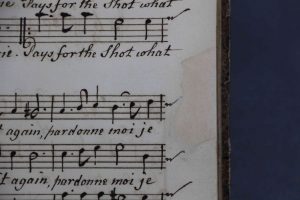 ie. Pays for the Shot what
ie. Pays for the Shot what
t again, pardonne moi je
t again, pardonne moi je